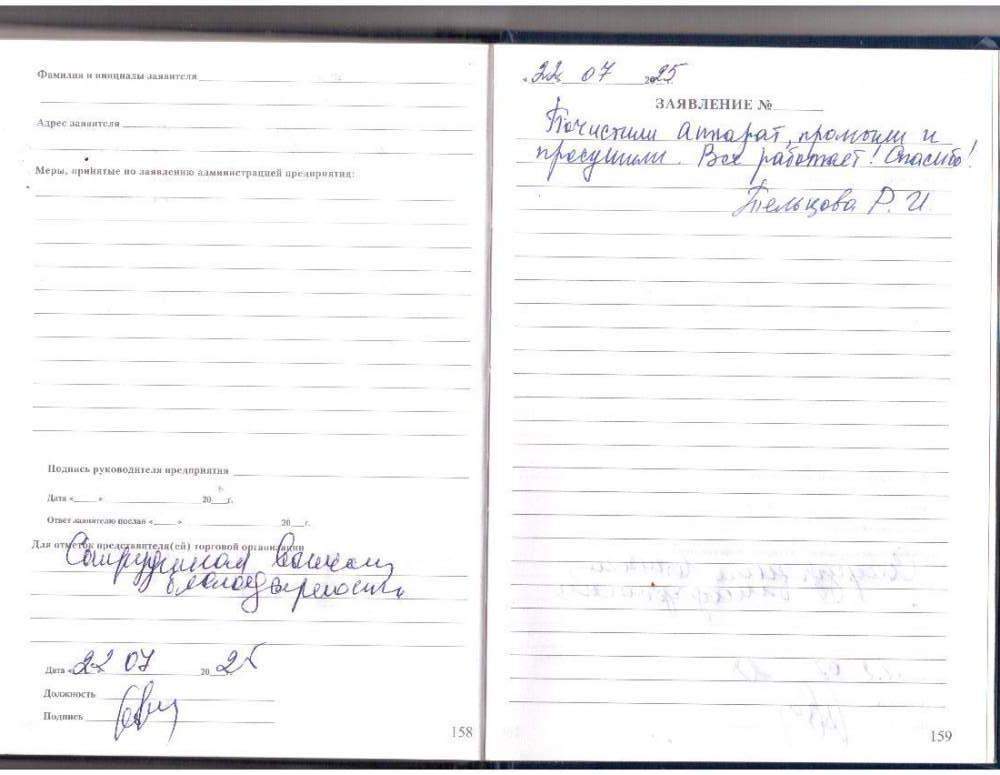 Фамилия и инициалы заявителя
Адрес заявителя
Меры, принятые по заявлению администрацией предприятия:
Подпись руководителя предприятия
Дата « » 20 г.
Ответ заявителю послан « » 20 г.
Для отметок представителя(ей) торговой организации
Сотрудникам
благодарность
Дата «22 07 2025
Должность
Подпись
158
«22 07 2025
ЗАЯВЛЕНИЕ №
Почистили аппарат, промыли и
просушили. Все работает! Спасибо!
Тельцова Р. И.
159